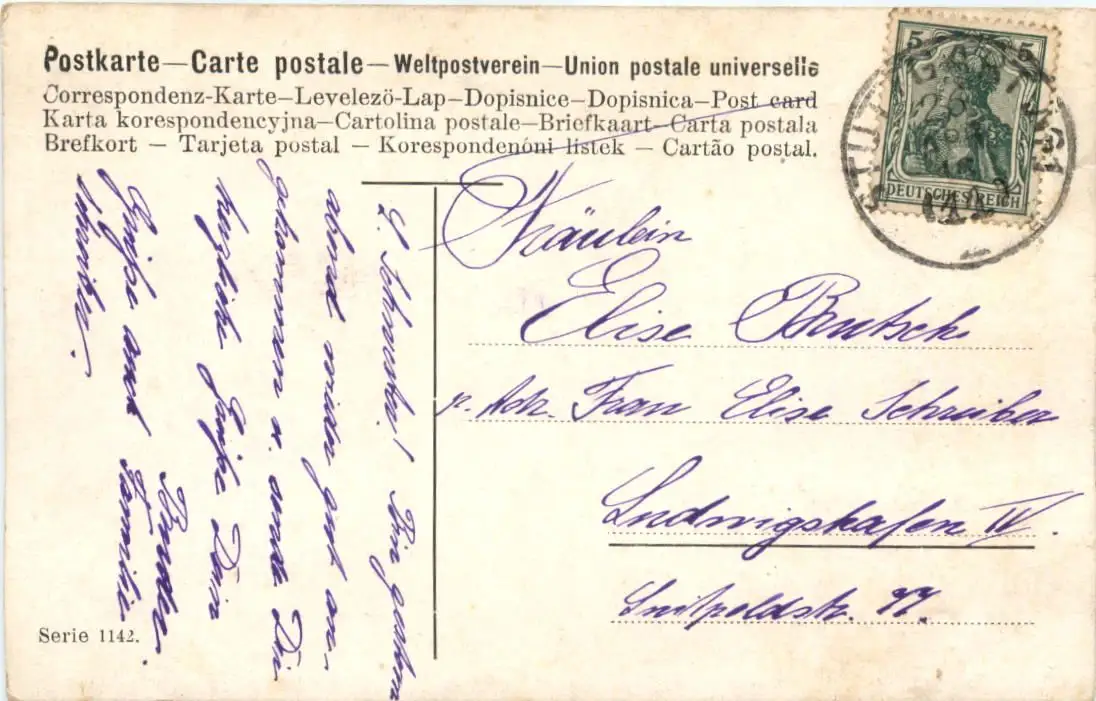 Postkarte—Carte postale—Weltpostverein—Union postale universelle
Correspondenz-Karte—Levelezö-Lap—Dopisnice—Dopisnica—Post card
Karta korespondencyjna—Cartolina postale—Briefkaart—Carta postala
Brefkort — Tarjeta postal — Korespondenčni listek — Cartão postal.
5 5
DEUTSCHES REICH
STUTTGART
Fräulein
Elise Brutsch
p. Adr. Frau Elise Schreiber
Ludwigshafen IV.
Luitpoldstr. 77.
L. Schwester! Bin gestern
abend wieder gut an-
gekommen u. sende Dir
herzliche Grüße Dein
Bruder.
Grüße auch Familie
Schreiber.
Serie 1142.